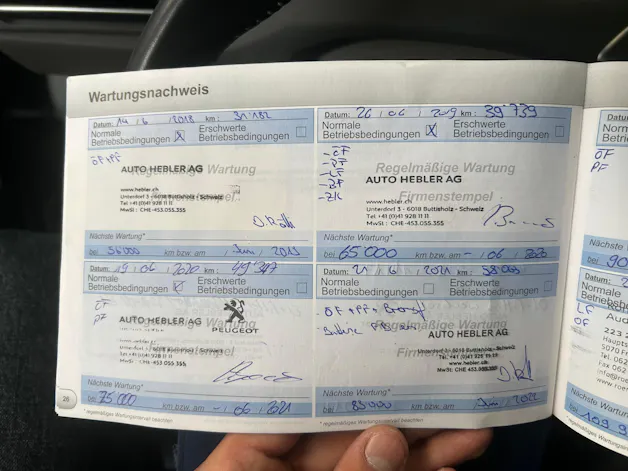 Wartungsnachweis
Datum: 14 / 6 / 2018 km: 31.182
Normale Betriebsbedingungen X Erschwerte Betriebsbedingungen
ÖF+PF
Regelmäßige Wartung
AUTO HEBLER AG
Firmenstempel
www.hebler.ch
Unterdorf 3 - 6018 Buttisholz - Schweiz
Tel +41 (0)41 928 11 11
MwSt : CHE-453.055.355
Nächste Wartung*
bei 56'000 km bzw. am Juni / 2019
Datum: 26 / 06 / 2019 km: 39'739
Normale Betriebsbedingungen X Erschwerte Betriebsbedingungen
-ÖF
-PF
-LF
-BF
-ZK
Regelmäßige Wartung
AUTO HEBLER AG
Firmenstempel
www.hebler.ch
Unterdorf 3 - 6018 Buttisholz - Schweiz
Tel +41 (0)41 928 11 11
MwSt : CHE-453.055.355
Nächste Wartung*
bei 65'000 km bzw. am - / 06 / 2020
Datum: 19 / 06 / 2020 km: 49'347
Normale Betriebsbedingungen X Erschwerte Betriebsbedingungen
ÖF
PF
AUTO HEBLER AG
PEUGEOT
www.hebler.ch
Unterdorf 3 - 6018 Buttisholz - Schweiz
Tel +41 (0)41 928 11 11
MwSt : CHE-453.055.355
Nächste Wartung*
bei 75'000 km bzw. am - / 06 / 2021
* regelmäßiges Wartungsintervall beachten
26
Datum: 21 / 6 / 2021 km: 58'000
Normale Betriebsbedingungen Erschwerte Betriebsbedingungen
ÖF + PF +
Regelmäßige Wartung
AUTO HEBLER AG
Unterdorf 3 - 6018 Buttisholz - Schweiz
Tel. +41 (0)41 928 11 11
www.hebler.ch
MwSt : CHE-453.055.355
Nächste Wartung*
bei 85'000 km bzw. am Juni / 2022
* regelmäßiges Wartungsintervall beachten
Datum:
Normale
Betriebsbedingungen
ÖF
PF
Nächste
bei 90
Datum:
Normale
Betriebsbeding
LF
ÖF
223
Haupts
5070 F
Tel. 062
Fax 062
Nächste Wartu
bei 109.9
* regelmäßiges